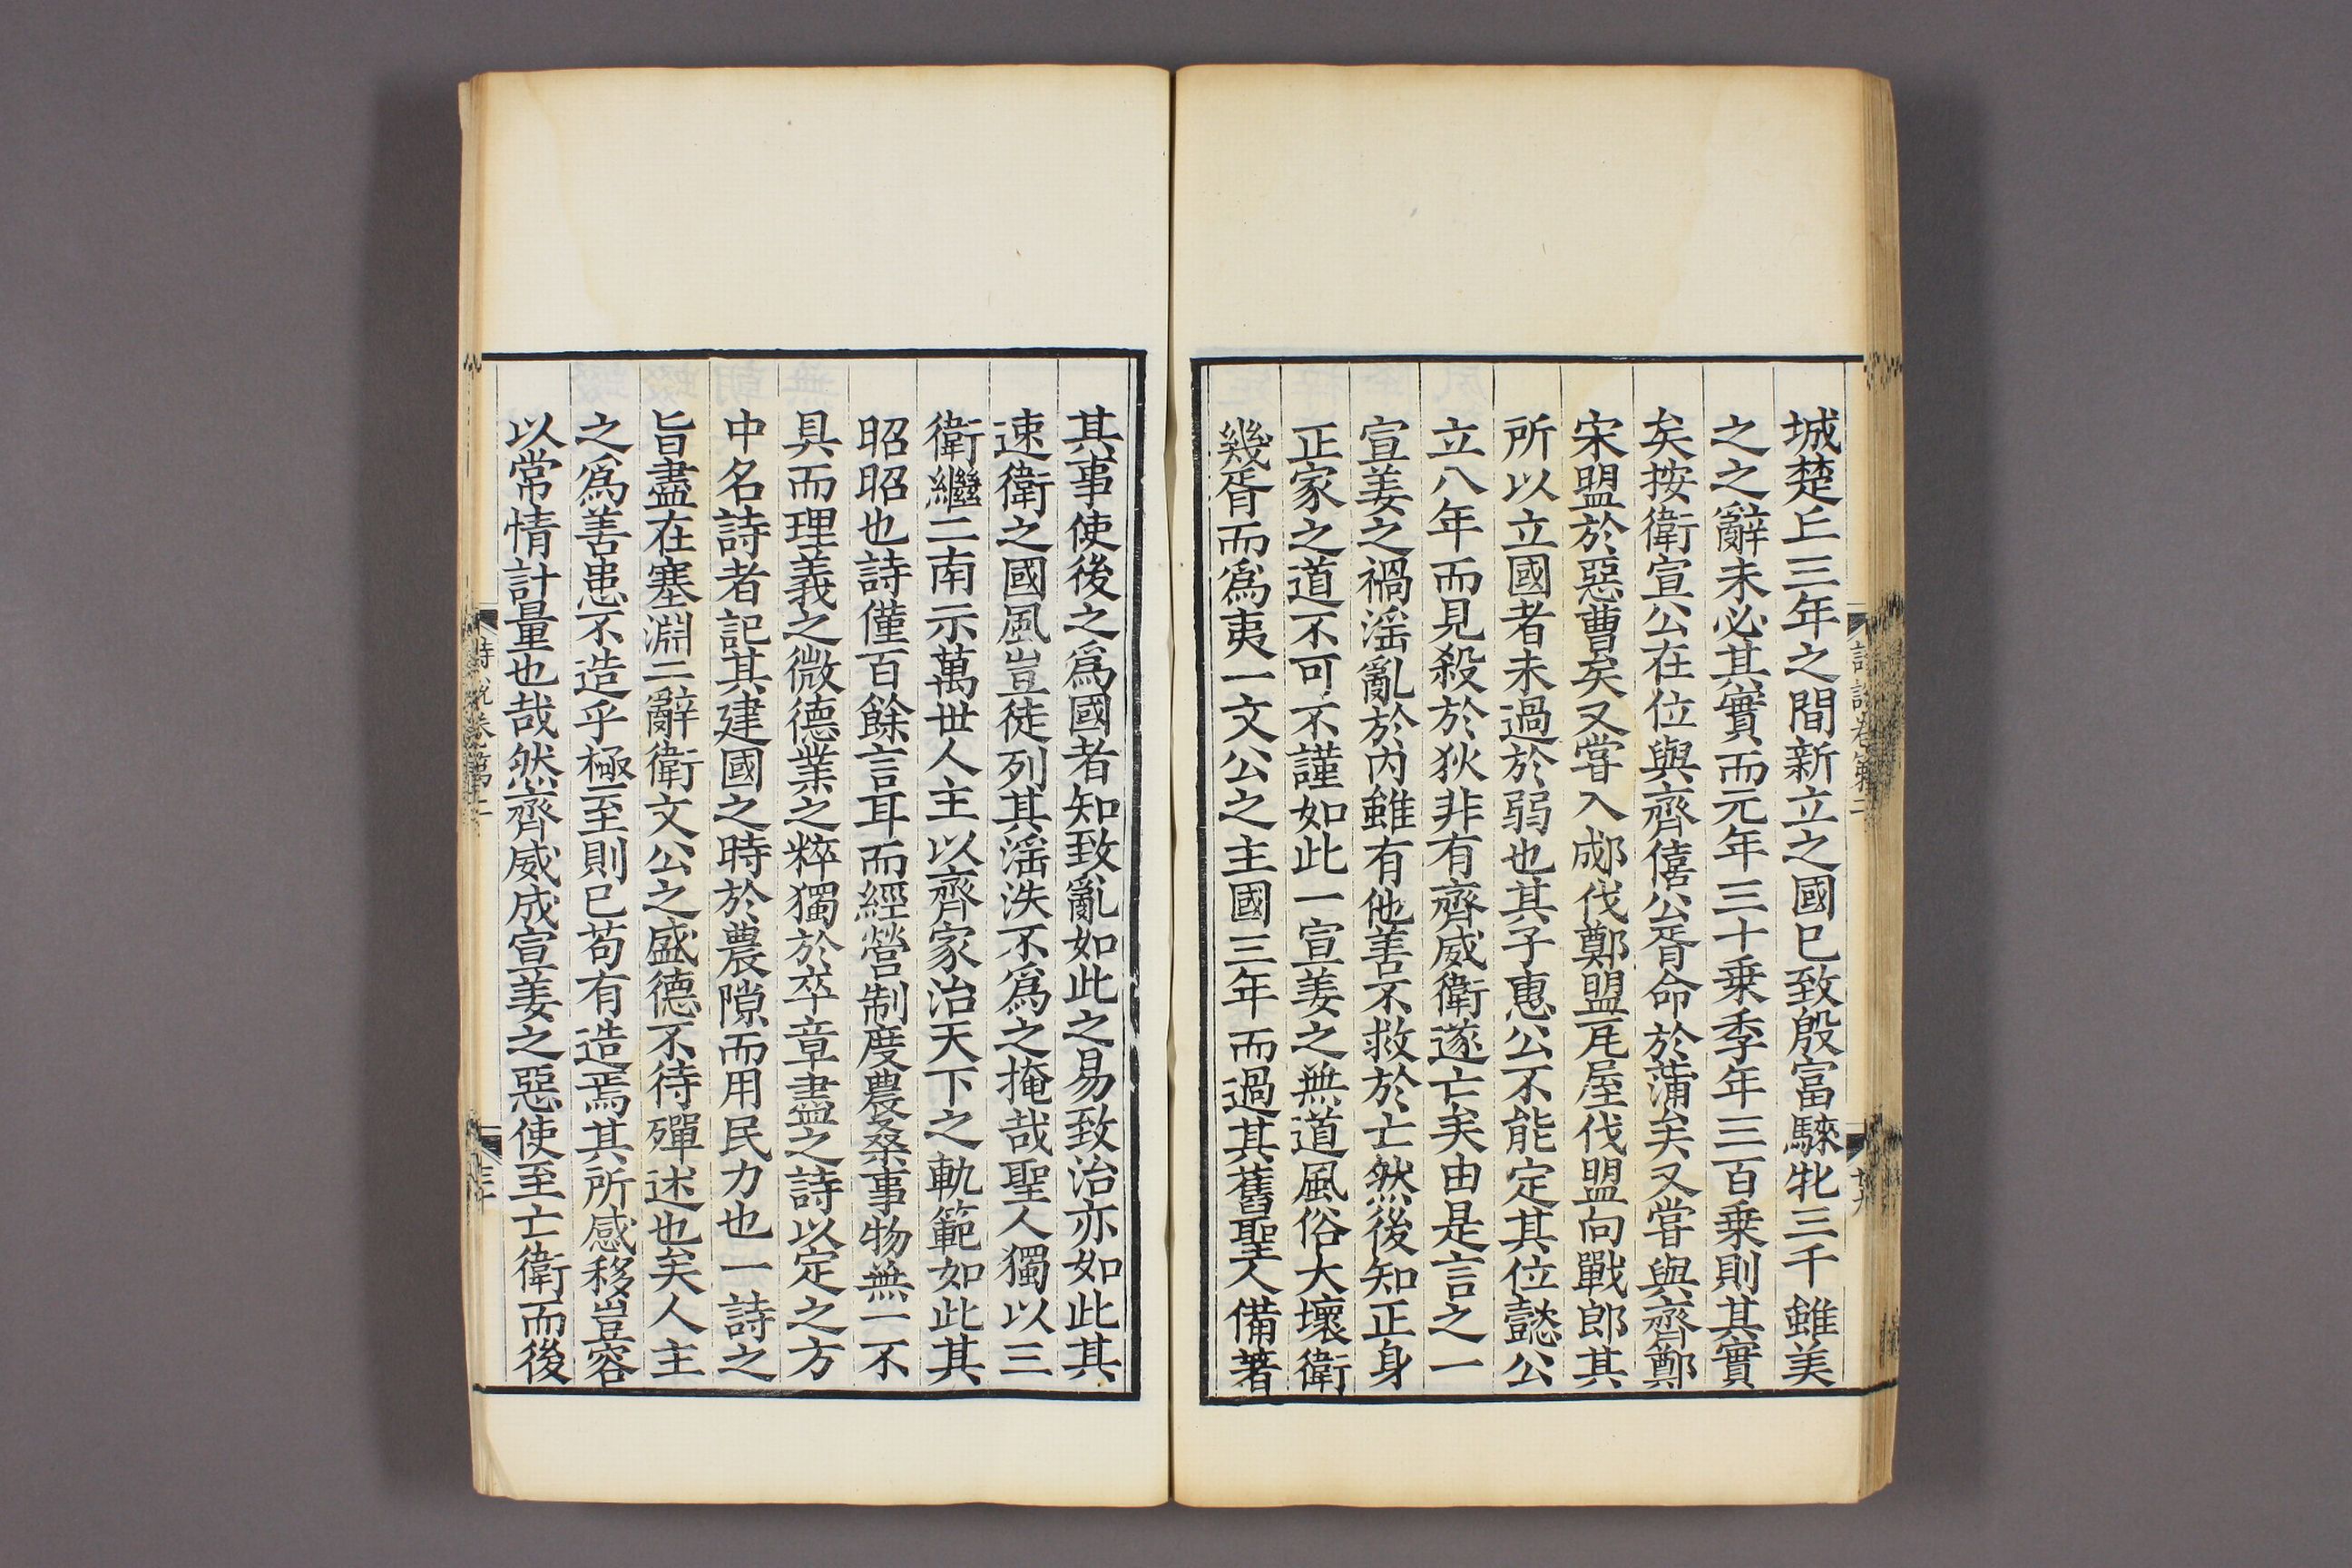 城楚丘三年之間新立之國已致殷富騋牝三千雖美
之之辭未必其實而元年三十乗季年三百乗則其實
矣按衛宣公在位與齊僖公胥命於蒲矣又甞與齊鄭
宋盟於惡曹矣又甞入郕伐鄭盟瓦屋伐盟向戰郎其
所以立國者未過於弱也其子惠公不能定其位懿公
立八年而見殺於狄非有齊威衛遂亡矣由是言之一
宣姜之禍滛亂於內雖有他善不救於亡然後知正身
正家之道不可不謹如此一宣姜之無道風俗大壞衛
幾胥而爲夷一文公之主國三年而過其舊聖人備著
其事使後之爲國者知致亂如此之易致治亦如此其
速衛之國風豈徒列其滛泆不爲之掩哉聖人獨以三
衛繼二南示萬世人主以齊家治天下之軌範如此其
昭昭也詩僅百餘言耳而經營制度農桑事物無一不
具而理義之微德業之粹獨於卒章盡之詩以定之方
中名詩者記其建國之時於農隙而用民力也一詩之
旨盡在塞淵二辭衛文公之盛德不待殫述也矣人主
之爲善患不造乎極至則已苟有造焉其所感移豈容
以常情計量也哉然齊威成宣姜之惡使至亡衛而後
詩說卷第二